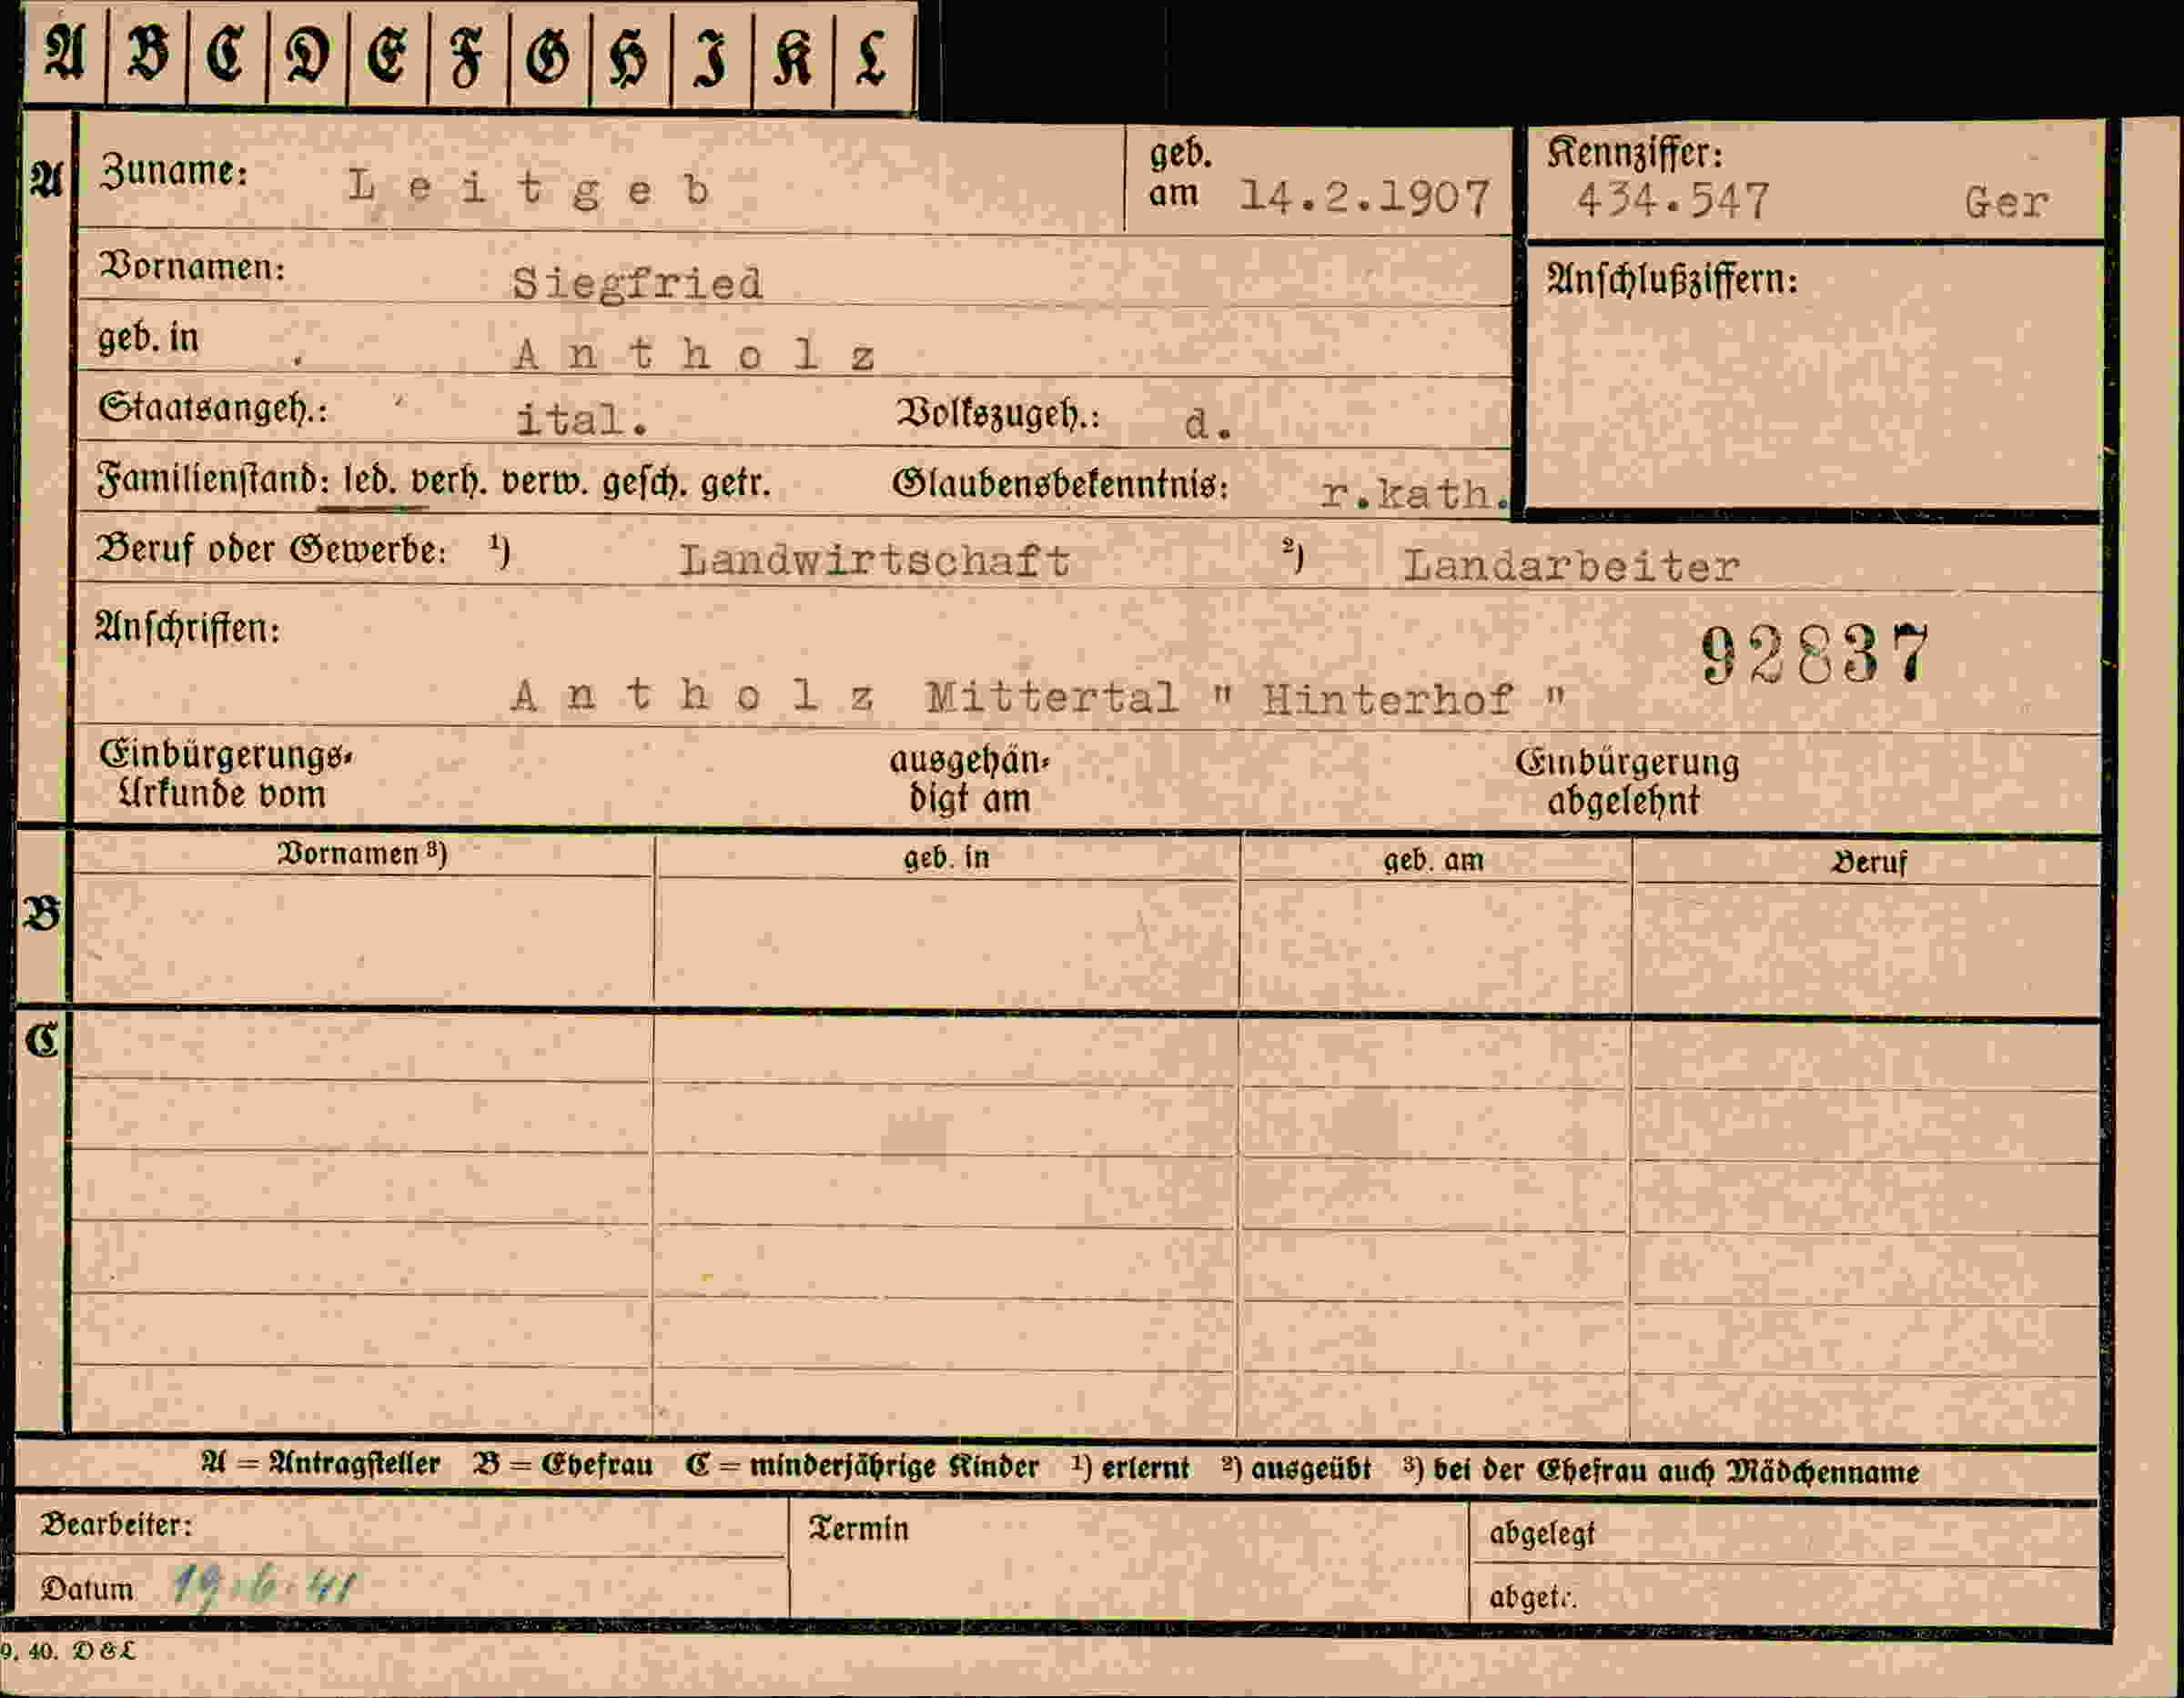 A B C D E F G H I K L
A Zuname: Leitgeb geb. am 14.2.1907 Kennziffer: 434.547 Ger
Vornamen: Siegfried Anschlußziffern:
geb. in Antholz
Staatsangeh.: ital. Volkszugeh.: d.
Familienstand: led. verh. verw. gesch. getr. Glaubensbekenntnis: r.kath.
Beruf oder Gewerbe: ¹) Landwirtschaft ²) Landarbeiter
Anschriften: 92837
Antholz Mittertal " Hinterhof "
Einbürgerungs- ausgehän- Einbürgerung
Urkunde vom digt am abgelehnt
Vornamen ³) geb. in geb. am Beruf
B
C
A = Antragsteller B = Ehefrau C = minderjährige Kinder ¹) erlernt ²) ausgeübt ³) bei der Ehefrau auch Mädchenname
Bearbeiter: Termin abgelegt
Datum 19.6.41 abget.
9. 40. D & L